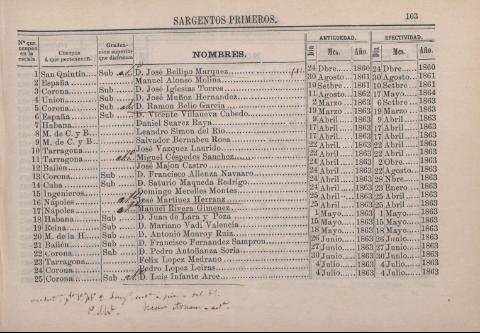 SARGENTOS PRIMEROS. 103
Nº que ocupan en la escala. Cuerpos á que pertenecen. Graduacion superior que disfrutan NOMBRES. ANTIGÜEDAD. EFECTIVIDAD.
Día Mes. Año. Día Mes. Año.
1 San Quintin. Sub D. José Bellipo Marquez 24 Dbre. 1860 24 Dbre. 1860
2 España Manuel Alonso Molina 30 Agosto 1861 30 Agosto 1861
3 Corona Sub D. José Iglesias Torres 10 Setbre 1861 10 Setbre 1861
4 Union Sub D. José Muñoz Hernandez 11 Agosto 1862 17 Mayo 1864
5 Corona Sub D. Ramon Belio Garcia 2 Marzo 1863 6 Setbre 1863
6 España Sub D. Vicente Villanova Cabedo 9 Marzo 1863 Marzo 1863
7 Habana Daniel Suarez Raya 9 Abril 1863 9 Abril 1863
8 M. de C. y B. Leandro Simon del Rio 17 Abril 1863 17 Abril 1863
9 M. de C. y B. Salvador Bernabeu Rosa 17 Abril 1863 17 Abril 1863
10 Tarragona José Vazquez Laurido 22 Abril 1863 22 Abril 1863
11 Tarragona Miguel Céspedes Sanchez 22 Abril 1863 22 Abril 1863
12 Bailén José Majon Castro 22 Abril 1863 22 Abril 1863
13 Corona Sub D. Francisco Allenza Navaaro 24 Abril 1863 2 Obre. 1863
14 Cuba Sub D. Saturio Maqueda Rodrigo 24 Abril 1863 22 Agosto 1863
15 Ingenieros Domingo Merelles Montes 24 Abril 1863 28 Nbre. 1863
16 Nápoles José Martinez Herranz 24 Abril 1863 23 Enero 1863
17 Nápoles Manuel Rivera Gimenez 25 Abril 1863 25 Abril 1863
18 Habana Sub D. Juan de Lara y Poza 1 Mayo 1863 1 Mayo 1863
19 Reina Sub D. Mariano Vadi Valencia 15 Mayo 1863 15 Mayo 1863
20 M. de la H. Sub D. Antonio Monroy Ruiz 18 Mayo 1863 18 Mayo 1863
21 Bailén Sub D. Francisco Fernandez Sampron 26 Junio 1863 26 Junio 1863
22 Corona Sub D. Pedro Autoñanza Soria 27 Junio 1863 27 Junio 1863
23 Tarragona Felix Lopez Medrano 30 Junio 1863 30 Junio 1863
24 Corona Pedro Lopez Leiras 4 Julio 1863 4 Julio 1863
25 Corona Sub D. Luis Infante Arce 4 Julio 1863 4 Julio 1863